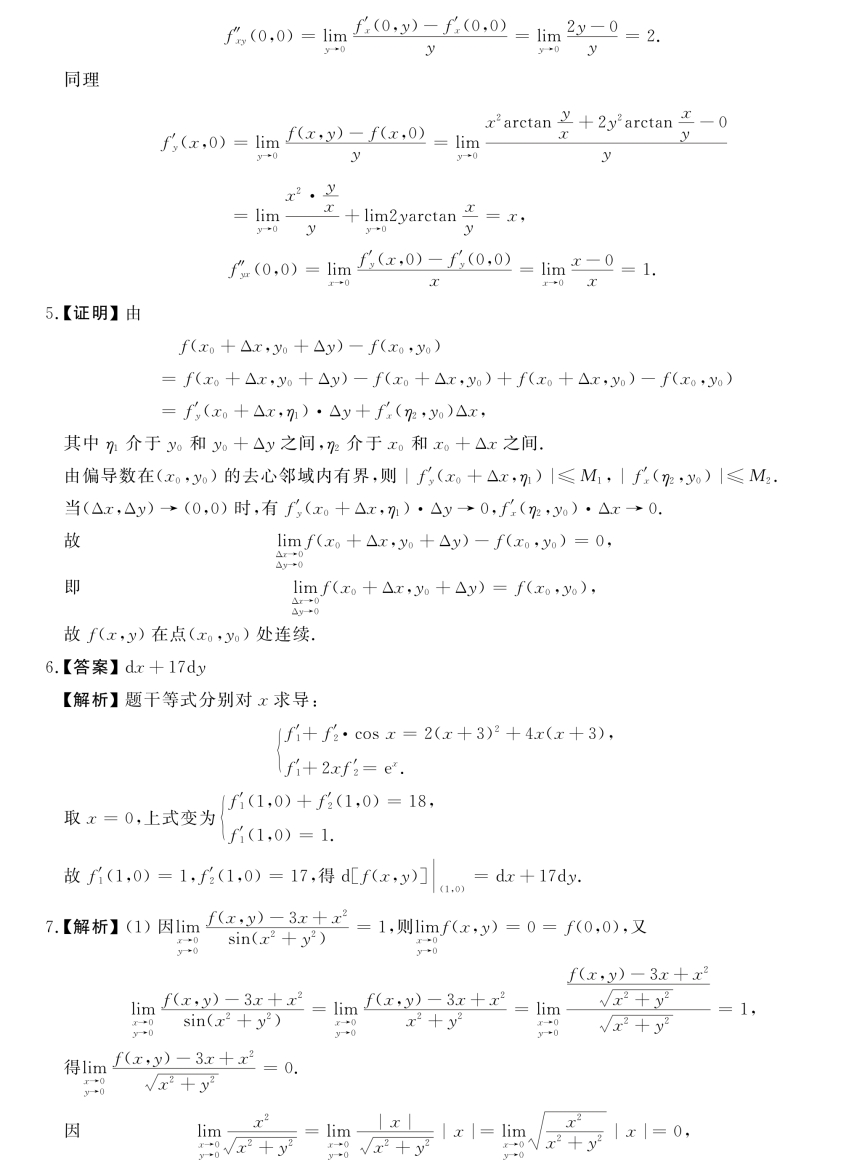 f″xy(0,0) = lim_{y→0} (f′x(0,y) − f′x(0,0))/y = lim_{y→0} (2y − 0)/y = 2.
同理
f′y(x,0) = lim_{y→0} (f(x,y) − f(x,0))/y = lim_{y→0} (x² arctan y/x + 2y² arctan x/y − 0)/y
= lim_{y→0} (x² · y/x)/y + lim_{y→0} 2y arctan x/y = x,
f″yx(0,0) = lim_{x→0} (f′y(x,0) − f′y(0,0))/x = lim_{x→0} (x − 0)/x = 1.
5.【证明】由
f(x₀ + Δx,y₀ + Δy) − f(x₀,y₀)
= f(x₀ + Δx,y₀ + Δy) − f(x₀ + Δx,y₀) + f(x₀ + Δx,y₀) − f(x₀,y₀)
= f′y(x₀ + Δx,η₁) · Δy + f′x(η₂,y₀)Δx,
其中 η₁ 介于 y₀ 和 y₀ + Δy 之间,η₂ 介于 x₀ 和 x₀ + Δx 之间.
由偏导数在(x₀,y₀)的去心邻域内有界,则 | f′y(x₀ + Δx,η₁) |≤ M₁, | f′x(η₂,y₀) |≤ M₂.
当(Δx,Δy) → (0,0) 时,有 f′y(x₀ + Δx,η₁) · Δy → 0,f′x(η₂,y₀) · Δx → 0.
故 lim_{Δx→0 Δy→0} f(x₀ + Δx,y₀ + Δy) − f(x₀,y₀) = 0,
即 lim_{Δx→0 Δy→0} f(x₀ + Δx,y₀ + Δy) = f(x₀,y₀),
故 f(x,y) 在点(x₀,y₀)处连续.
6.【答案】dx + 17dy
【解析】题干等式分别对 x 求导:
{ f′₁ + f′₂ · cos x = 2(x + 3)² + 4x(x + 3),
f′₁ + 2xf′₂ = eˣ.
取 x = 0,上式变为 { f′₁(1,0) + f′₂(1,0) = 18,
f′₁(1,0) = 1.
故 f′₁(1,0) = 1,f′₂(1,0) = 17,得 d[f(x,y)]|_(1,0) = dx + 17dy.
7.【解析】(1) 因 lim_{x→0 y→0} (f(x,y) − 3x + x²)/sin(x² + y²) = 1,则 lim_{x→0 y→0} f(x,y) = 0 = f(0,0),又
lim_{x→0 y→0} (f(x,y) − 3x + x²)/sin(x² + y²) = lim_{x→0 y→0} (f(x,y) − 3x + x²)/(x² + y²) = lim_{x→0 y→0} ((f(x,y) − 3x + x²)/√(x² + y²))/√(x² + y²) = 1,
得 lim_{x→0 y→0} (f(x,y) − 3x + x²)/√(x² + y²) = 0.
因 lim_{x→0 y→0} x²/√(x² + y²) = lim_{x→0 y→0} | x |/√(x² + y²) | x | = lim_{x→0 y→0} √(x²/(x² + y²)) | x | = 0,